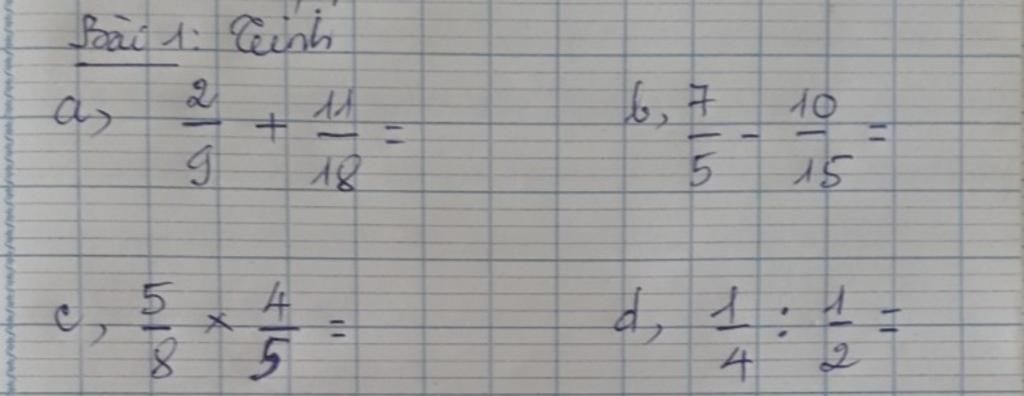 Bài 1: Tính
a, 2/9 + 11/18 =
b, 7/5 - 10/15 =
c, 5/8 × 4/5 =
d, 1/4 : 1/2 =